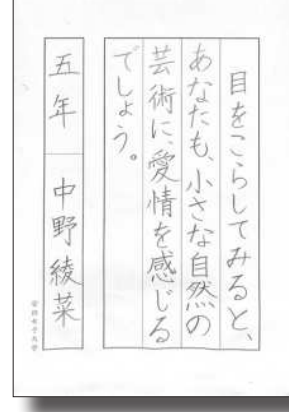 目をこらしてみると、
あなたも、小さな自然の
芸術に、愛情を感じる
でしょう。
五年 中野綾菜